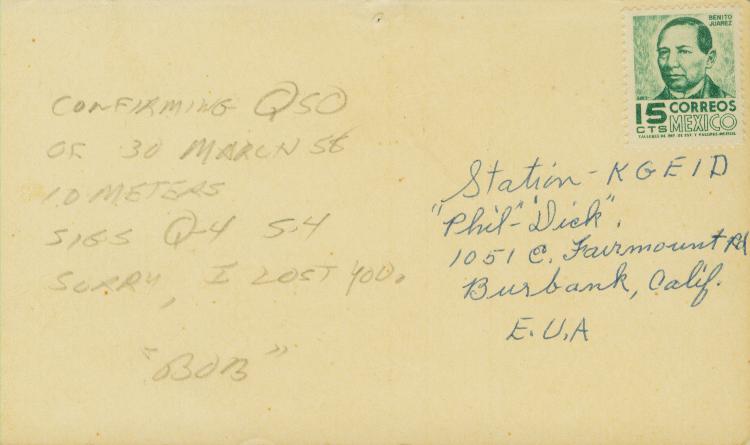 CONFIRMING QSO
OF 30 MARCH 56
10 METERS
SIGS Q-4 S-4
SORRY, I LOST YOU.
"BOB"
BENITO
JUAREZ
15 CORREOS
CTS MEXICO
Station - KGEID
"Phil"-"Dick".
1051 E. Fairmount Rd
Burbank, Calif.
E.U.A